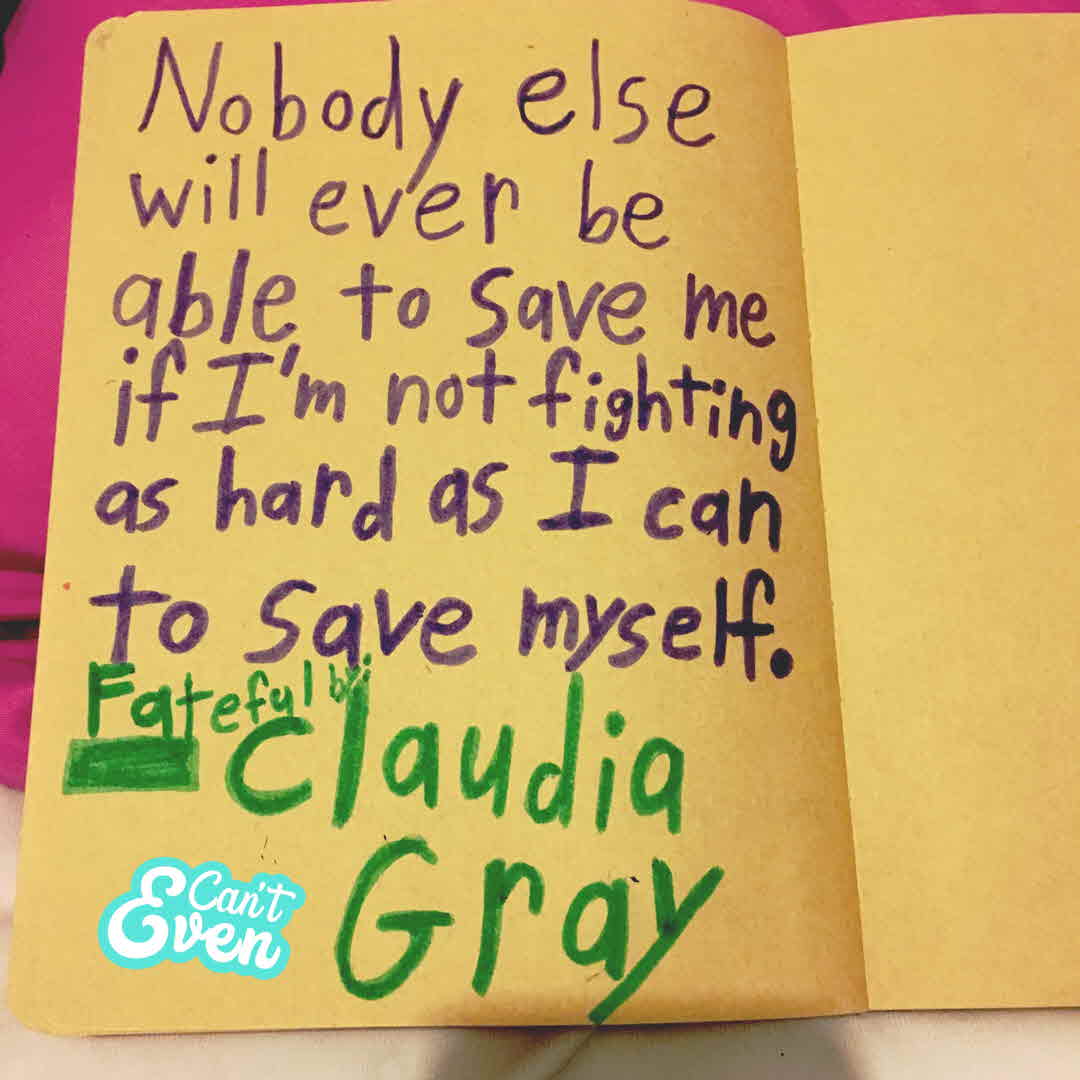 Nobody else
will ever be
able to save me
if I'm not fighting
as hard as I can
to save myself.
Fateful by:
Claudia
Gray
Can't
Even